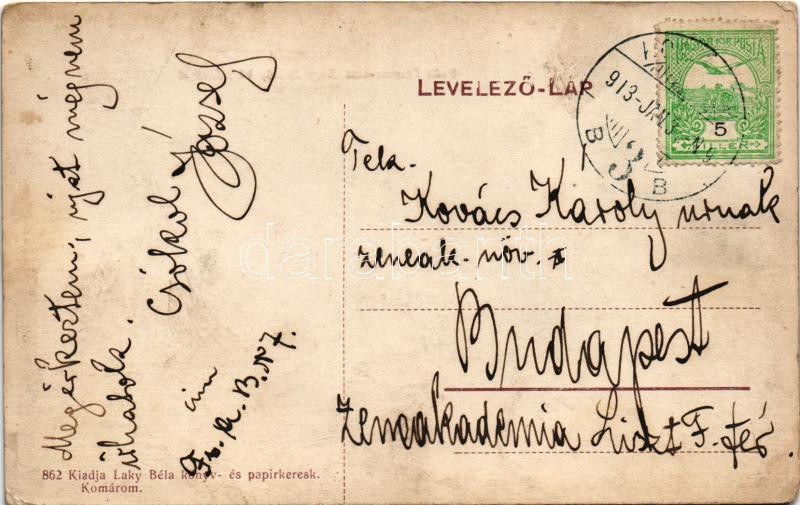 Megérkeztem, ujat mégnem
Csókol József
cim
LEVELEZŐ-LAP
MAGYAR KIR. POSTA
5
FILLÉR
913-JAN
3
B B
Tek.
Kovács Károly urnak
zeneak. növ.
Budapest
Zeneakademia Liszt F. tér.
darabanth
862 Kiadja Laky Béla könyv- és papirkeresk.
Komárom.